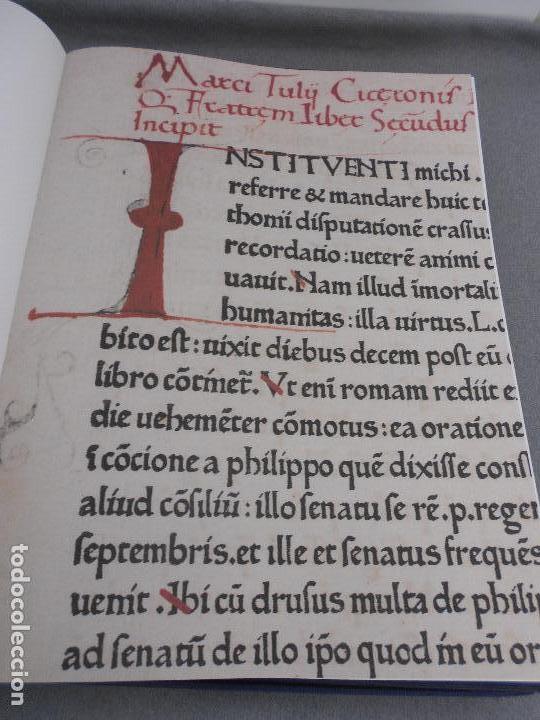 Marci Tulij Ciceronis
Q. Fratrem Liber Secũdus
Incipit
INSTITVENTI michi .
referre & mandare huic t
thomii disputationē crassus
recordatio : ueterē animi c
uauit. Nam illud ĩmortali
humanitas : illa uirtus. L. c
bito est : uixit diebus decem post eũ
libro cõtinet̃. Vt enĩ romam rediit e
die uehemēter cõmotus : ea oratione
ĩ cõcione a philippo quē dixisse cons
aliud cõsiliũ : illo senatu se rē. p. reger
septembris. et ille et senatus frequēs
uenit . Ibi cũ drusus multa de philip
ad senatũ de illo ip̃o quod in eũ or
todocoleccion.net